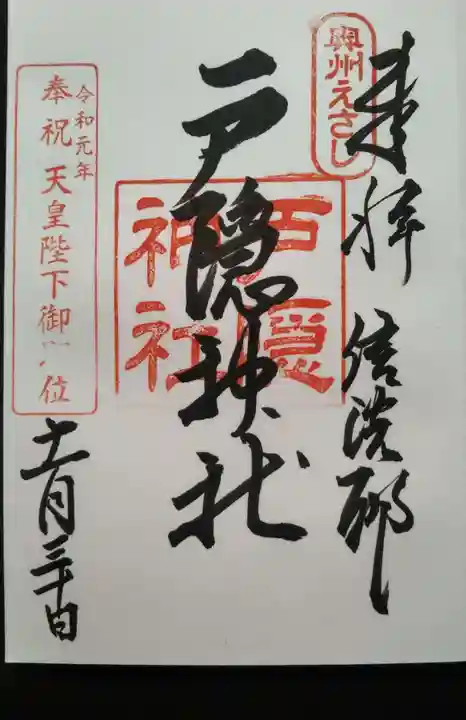 奉拝
奥州えさし
戸隠神社
戸隠
神社
令和元年
奉祝 天皇陛下御即位
十一月三十日